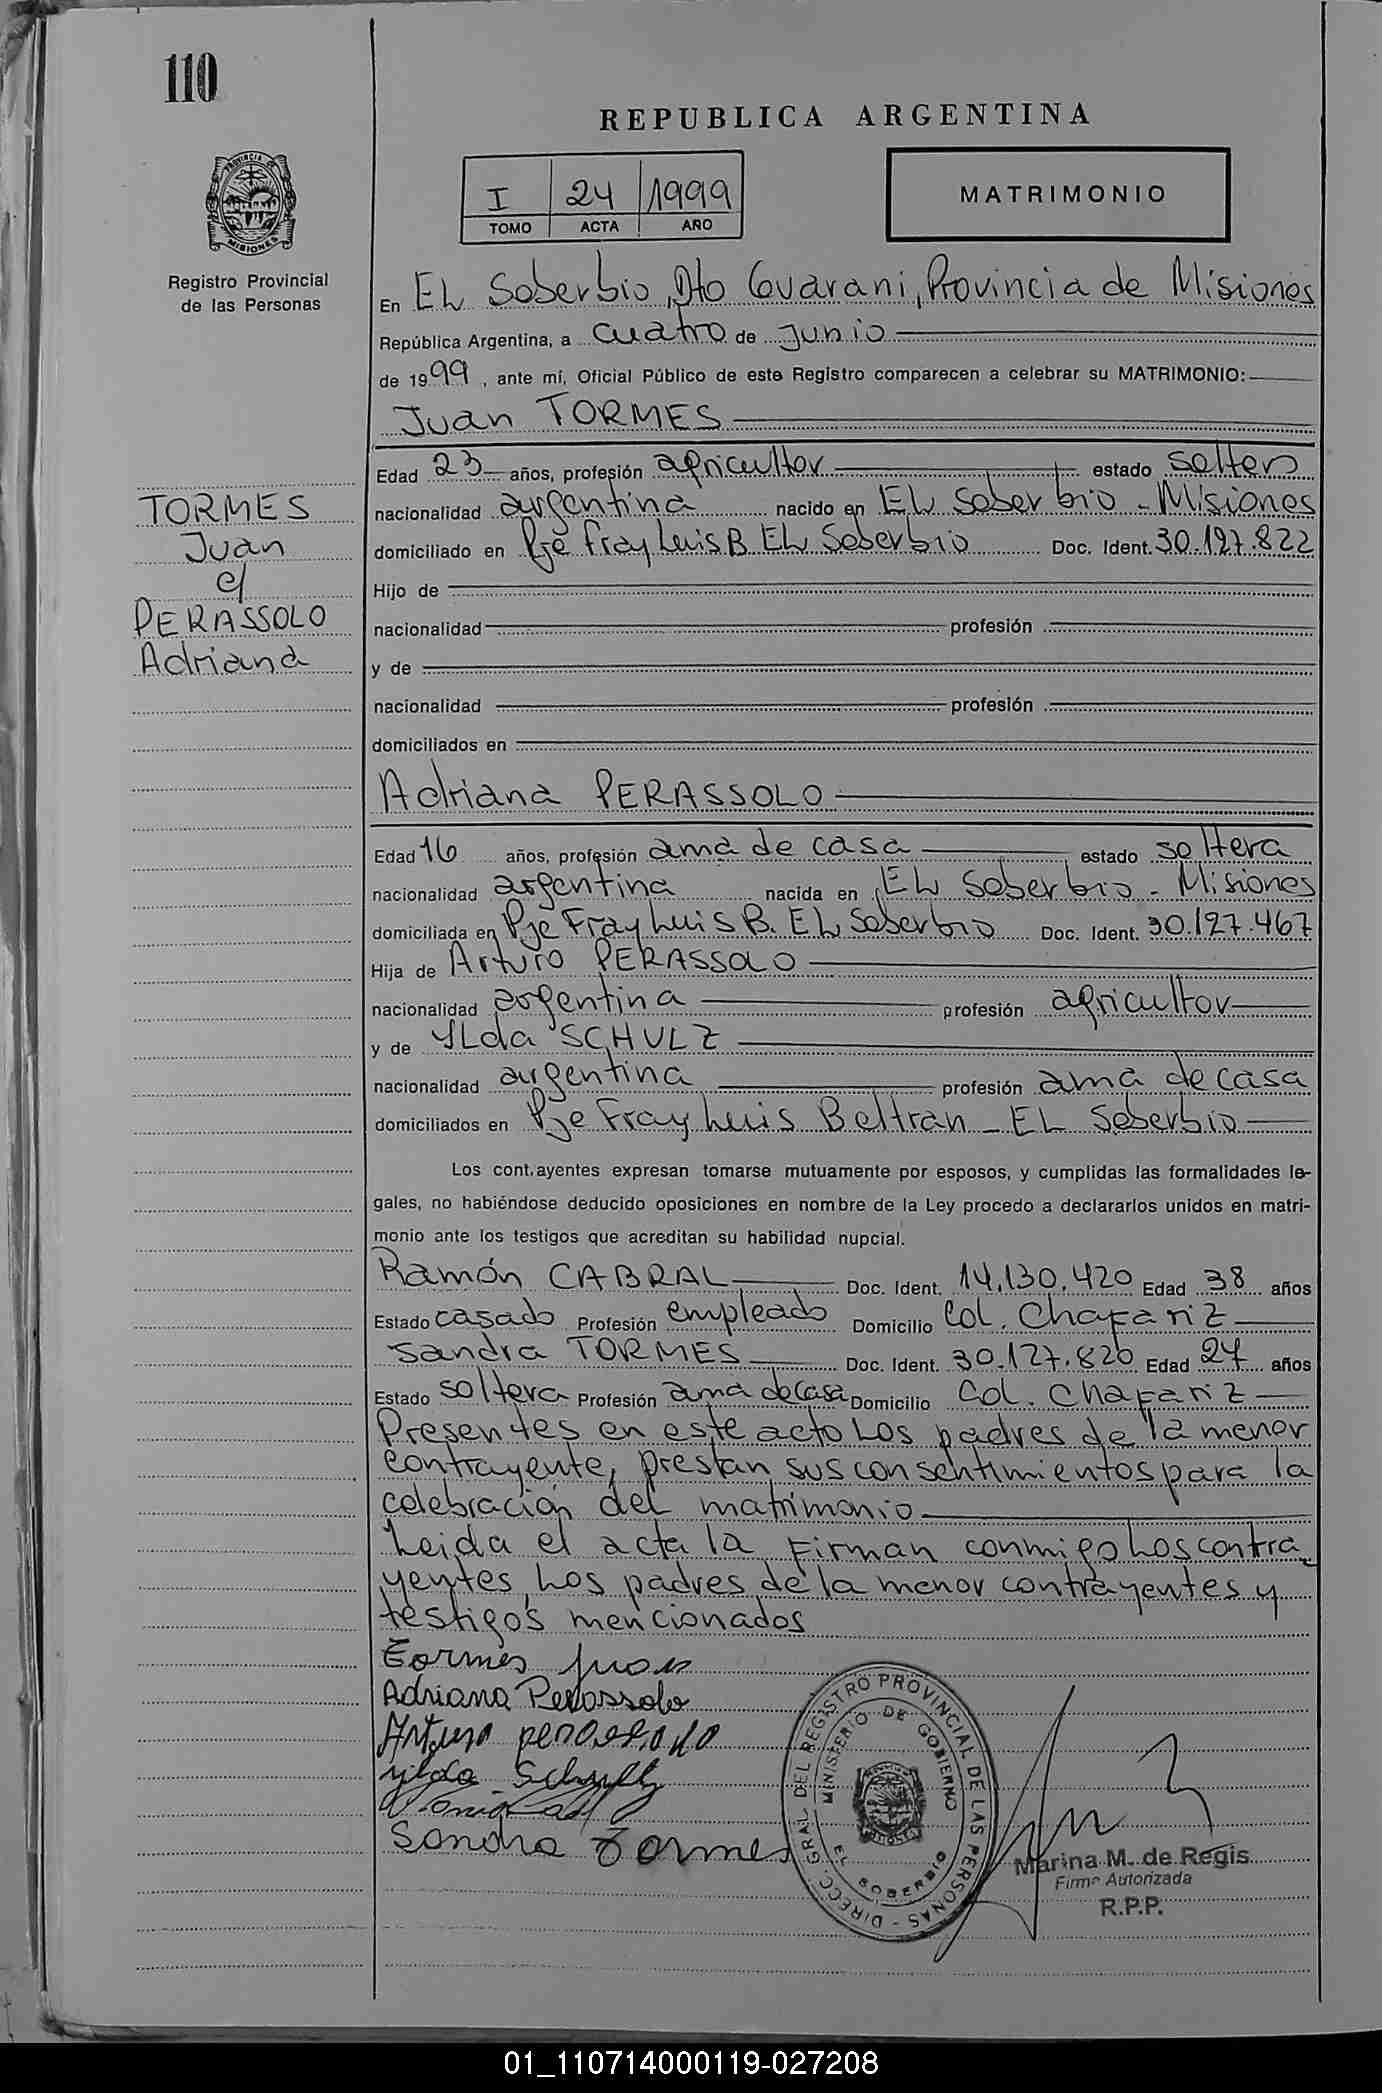 110
REPUBLICA ARGENTINA
PROVINCIA DE MISIONES
I 24 1999
TOMO ACTA AÑO
MATRIMONIO
Registro Provincial
de las Personas
En EL Soberbio, Dto Guarani, Provincia de Misiones
República Argentina, a cuatro de junio
de 1999, ante mí, Oficial Público de este Registro comparecen a celebrar su MATRIMONIO:
Juan TORMES
Edad 23 años, profesión agricultor estado soltero
nacionalidad argentina nacido en EL Soberbio - Misiones
domiciliado en Pje Fray Luis B EL Soberbio Doc. Ident. 30.127.822
Hijo de
nacionalidad profesión
y de
nacionalidad profesión
domiciliados en
TORMES
Juan
c/
PERASSOLO
Adriana
Adriana PERASSOLO
Edad 16 años, profesión ama de casa estado soltera
nacionalidad argentina nacida en EL Soberbio - Misiones
domiciliada en Pje Fray Luis B. EL Soberbio Doc. Ident. 30.127.467
Hija de Arturo PERASSOLO
nacionalidad argentina profesión agricultor
y de YLda SCHULZ
nacionalidad argentina profesión ama de casa
domiciliados en Pje Fray Luis Beltran - EL Soberbio
Los cont.ayentes expresan tomarse mutuamente por esposos, y cumplidas las formalidades le-
gales, no habiéndose deducido oposiciones en nombre de la Ley procedo a declararlos unidos en matri-
monio ante los testigos que acreditan su habilidad nupcial.
Ramón CABRAL Doc. Ident. 14.130.420 Edad 38 años
Estado casado Profesión empleado Domicilio Col. Chafariz
Sandra TORMES Doc. Ident. 30.127.820 Edad 24 años
Estado soltera Profesión ama de casa Domicilio Col. Chafariz
Presentes en este acto Los padres de la menor
contrayente, prestan sus consentimientos para la
celebración del matrimonio
Leida el acta la firman conmigo Los contra
yentes, Los padres de la menor contrayentes y
testigos mencionados
Tormes Juan
Adriana Perassolo
Arturo perassolo
ylda Schultz
Sandra Tormes
DIRECC. GRAL. DEL REGISTRO PROVINCIAL DE LAS PERSONAS -
MINISTERIO DE GOBIERNO
EL SOBERBIO
Marina M. de Regis
Firma Autorizada
R.P.P.
01_110714000119-027208